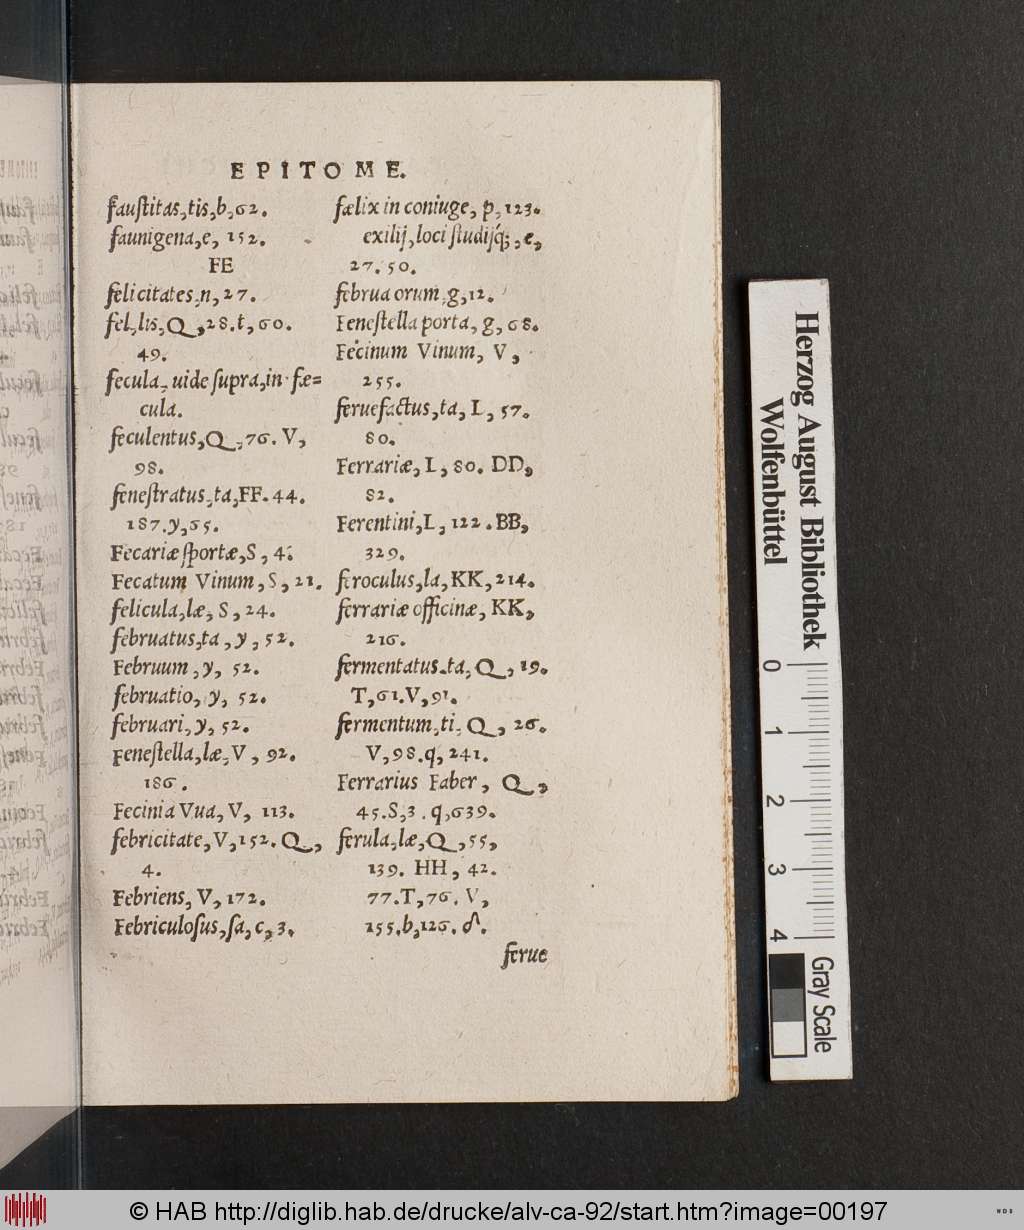 EPITOME.
fauſtitas,tis,b,62.
faunigena,e, 152.
FE
felicitates,n,27.
fel,lis,Q,28.t,60.
49.
fecula, uide ſupra,in fæ=
cula.
feculentus,Q,76. V,
98.
feneſtratus,ta,FF.44.
187.y,65.
Fecariæ ſportæ,S, 4.
Fecatum Vinum, S, 21.
felicula,læ, S, 24.
februatus,ta, y, 52.
Februum, y, 52.
februatio, y, 52.
februari, y, 52.
Feneſtella,læ, V, 92.
186.
Fecinia Vua, V, 113.
febricitate,V,152. Q,
4.
Febriens, V, 172.
Febriculoſus,ſa, c, 3.
fælix in coniuge, p, 123.
exilij,loci ſtudijq́;,e,
27. 50.
februa orum,g,12.
Feneſtella porta, g, 68.
Fecinum Vinum, V,
255.
feruefactus,ta, L, 57.
80.
Ferrariæ, L, 80. DD,
82.
Ferentini,L, 122.BB,
329.
feroculus,la, KK,214.
ferrariæ officinæ, KK,
216.
fermentatus,ta, Q, 19.
T,61.V,91.
fermentum,ti, Q, 26.
V,98.q,241.
Ferrarius Faber, Q,
45.S,3. q,639.
ferula,læ,Q,55,
139. HH, 42.
77.T,76. V,
155.b,126. &.
ferue
Herzog August Bibliothek
Wolfenbüttel
0 1 2 3 4
Gray Scale
© HAB http://diglib.hab.de/drucke/alv-ca-92/start.htm?image=00197